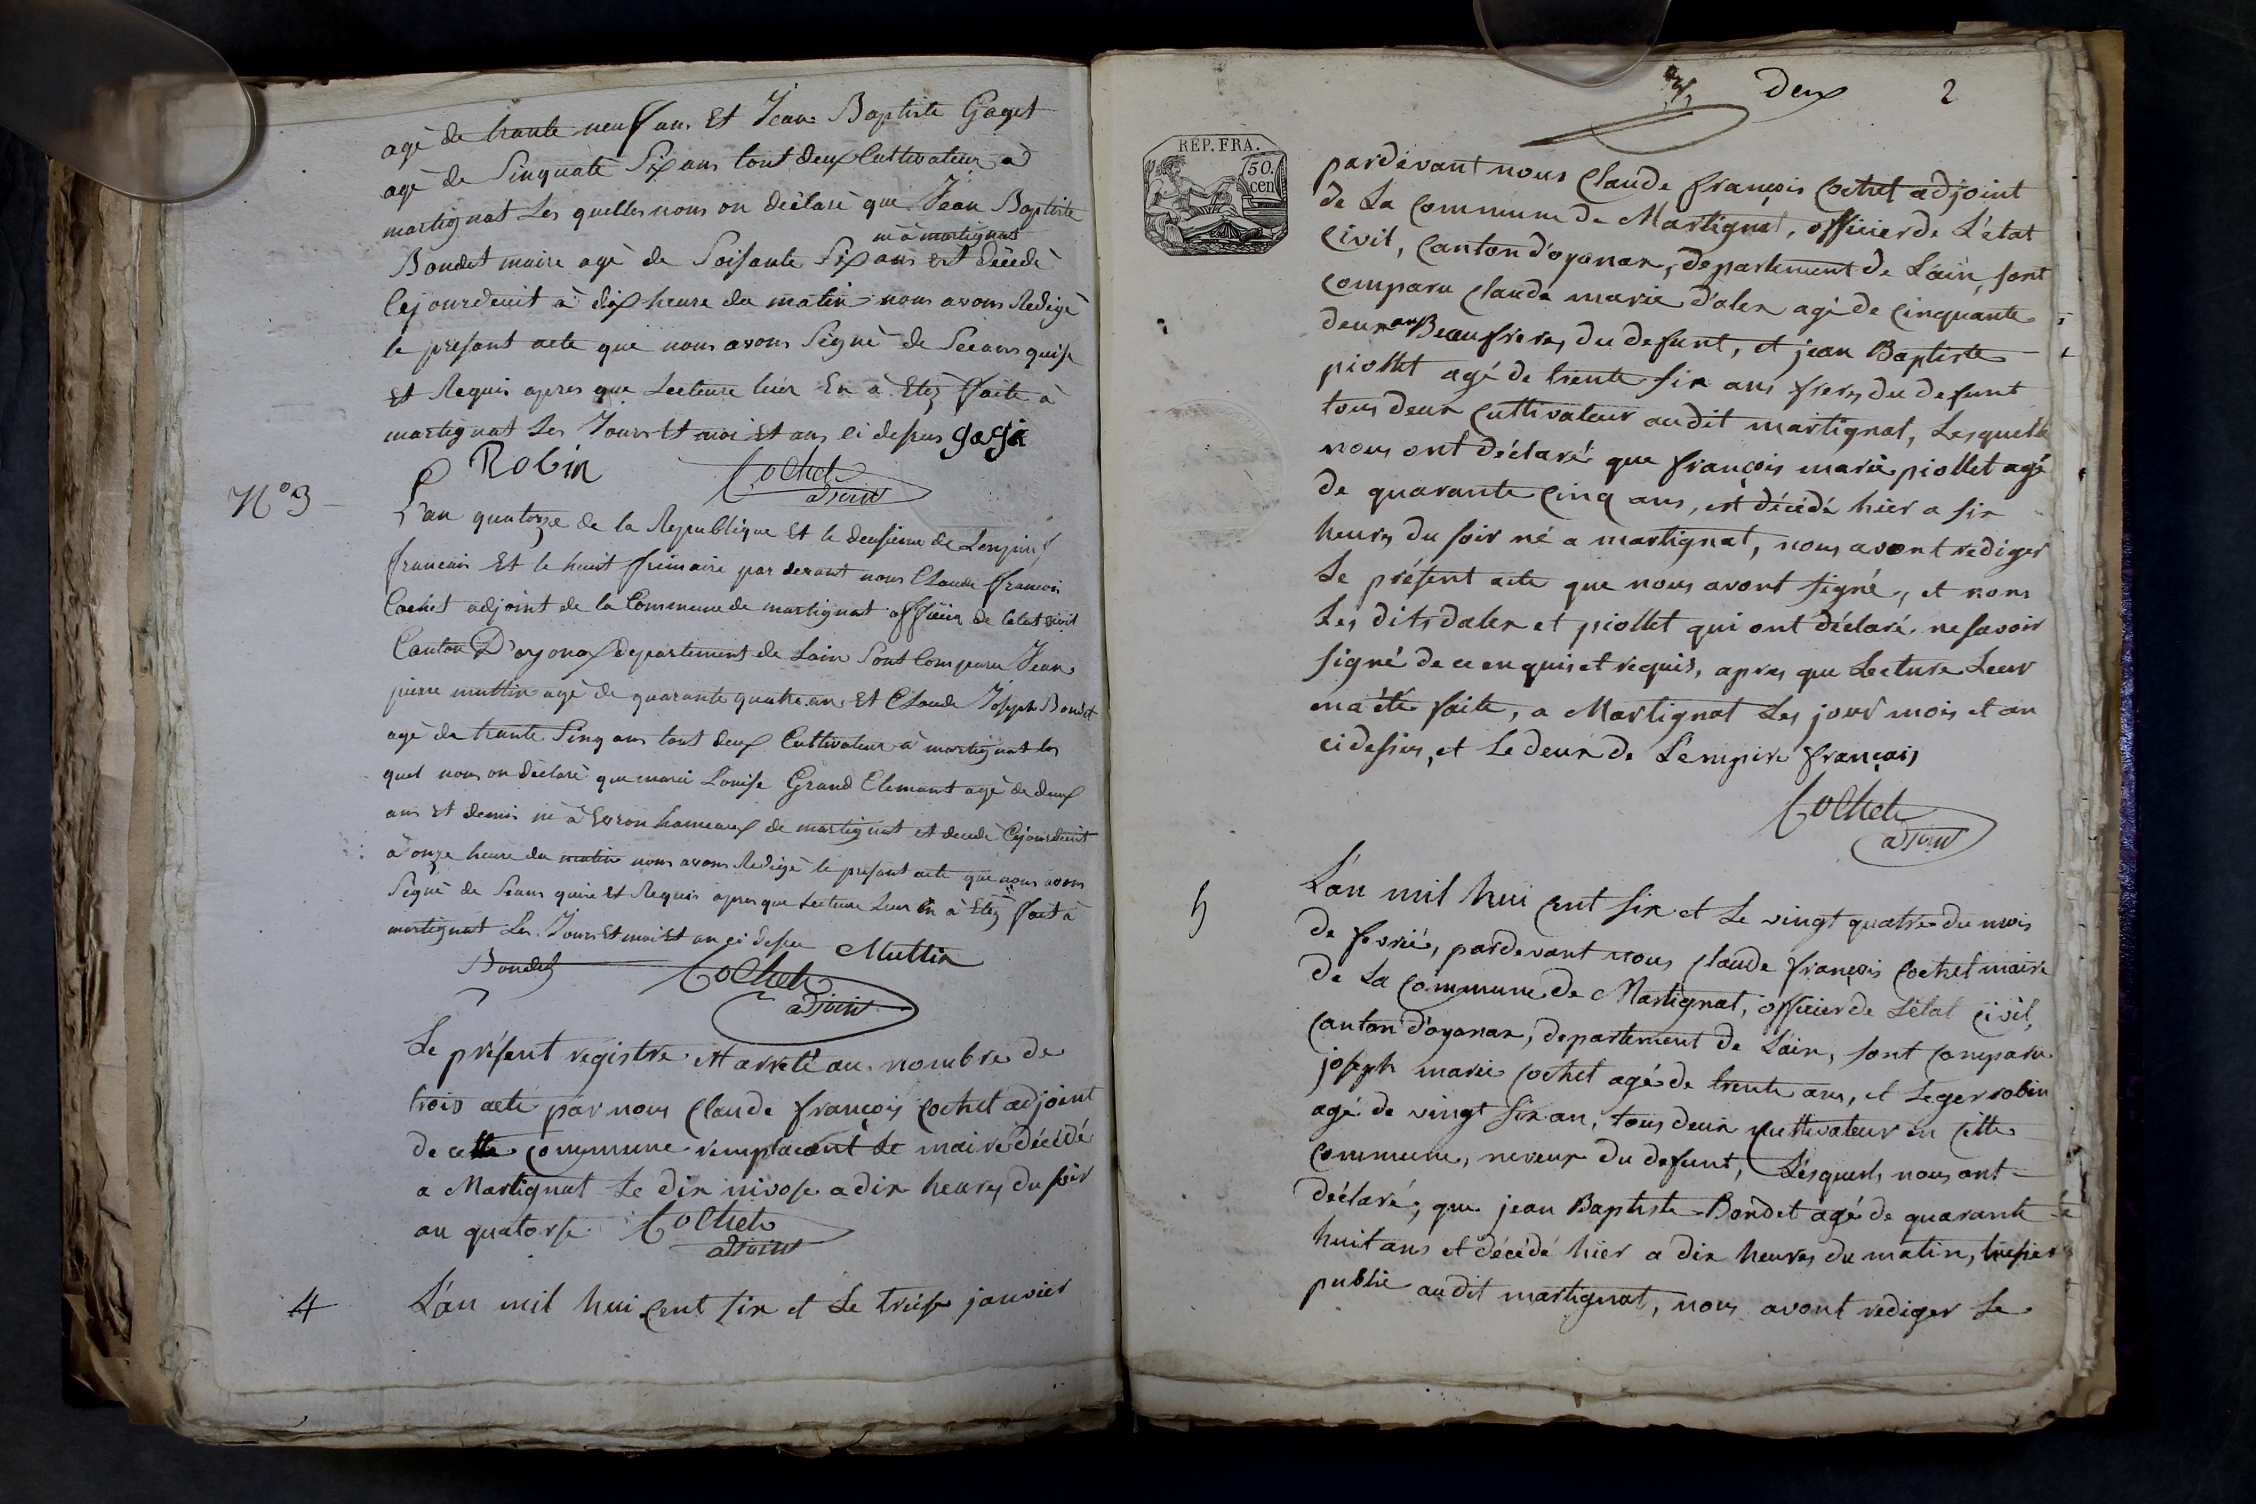 agé de trante neuf ans Et Jean Baptiste Gaget
agé de Sinquate Six ans tout deux Cultivateur a
martignat Les quelles nous on déclaré que Jean Baptiste
né à martignat
Bondet maire agé de Soisante Six ans est décédé
Cejourdeuit à dix heure du matin nous avons Redigé
le presant acte que nous avons Signé de Seeans quise
Et Requis apres que Lecteure leur En à Etéz ffaite à
martignat Les Jours Et moi Et ans ci desus gagé
Robin Cochet
adjoint
N° 3
L'an quatorze de la Republique Et le deusieme de Lenpire
francais Et le huit ffrimaire par devant nous Claude ffrancois
Cochet adjoint de la Commune de martignat officier de letat civil
Canton D'oyonax departement de Lain Sont Comparu Jean
pierre muttin agé de quarante quatre ans Et Claude Joseph Bondet
agé de trante Sinq ans tout deux Cultivateur à martignat les
quel nous on déclaré que marie Louise Grand Clemant agé de deux
ans et demis né à Evron hameaux de martignat et décédé Cejourdeuit
à onze heure du matin nous avons Redigé le presant acte que nous avons
Signé de Seans quise Et Requis apres que Lecture Leur En à Etéz ffait à
martignat Les Jours Et moi Et an ci desu Muttin
Bondet Cochet
adjoint
Le présent registre et arreté au nombre de
trois acte par nous Claude françois Cochet adjoint
de cette Commune remplacent le maire décédé
a Martignat Le dix nivose a dix heures du soir
an quatorse Cochet
adjoint
4
L'an mil hui Cent six et Le treise janvier
deux 2
REP. FRA.
50.
cen
pardevant nous Claude françois Cochet adjoint
de La Commune de Martignat, officier de L'état
Civil, Canton d'oyonax, departement de L'ain, sont
Comparu Claude marie d'alex agé de Cinquante
deux ans Beaufreres du defunt, et jean Baptiste
piollet agé de trente six ans freres du defunt
tous deux Cultivateur audit martignat, Lesquels
nous ont déclaré que françois marie piollet agé
de quarante Cinq ans, est décédé hier a six
heures du soir né a martignat, nous avont rediger
Le présent acte que nous avont signé, et nons
Les dits dalex et piollet qui ont déclaré ne savoir
signé de ce enquis et requis, apres que Lecture Leur
en a été faite, a Martignat Les jour mois et an
ci dessus, et Le deux de L'empire français
Cochet
adjoint
5
L'an mil hui Cent six et Le vingt quatre du mois
de fevrié, pardevant nous Claude françois Cochet maire
de La Commune de Martignat, officier de L'état Civil,
Canton d'oyonax, departement de L'ain, sont Comparu
joseph marie Cochet agé de trente ans, et Leger robin
agé de vingt six an, tous deux Cultivateur en Cette
Commune, neveux du defunt, Lesquels nous ont
déclaré, que jean Baptiste Bondet agé de quarante
huit ans et décédé hier a dix heures du matin,
public audit martignat, nous avont rediger Le